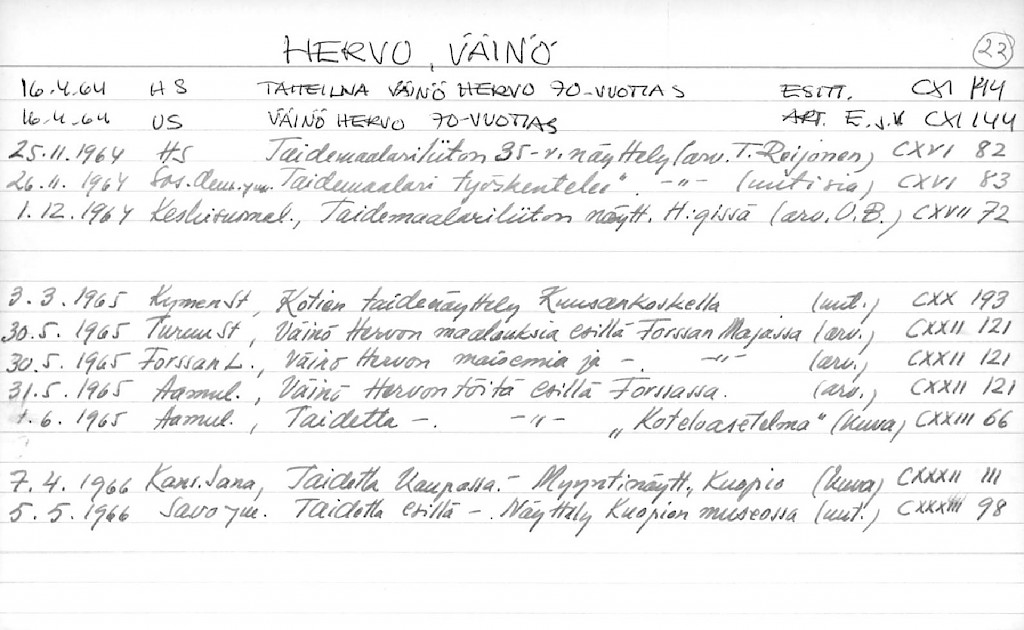 HERVO, VÄINÖ 22
16.4.64 HS TAITEILIJA VÄINÖ HERVO 70-VUOTIAS ESITT. CXI 144
16.4.64 US VÄINÖ HERVO 70-VUOTIAS ART. E.J.V CXI 144
25.11.1964 HS Taidemaalariliiton 35-v. näyttely (arv. T. Reijonen) CXVI 82
26.11.1964 Sos.dem.ym. Taidemaalari työskentelee" -"- (uutisia) CXVI 83
1.12.1964 Keskisuomal., Taidemaalariliiton näytt. H:gissä (arv. O.B.) CXVII 72
3.3.1965 Kymen St, Kotien taidenäyttely Kuusankoskella (uut.) CXX 193
30.5.1965 Turun St, Väinö Hervon maalauksia esillä Forssan Majassa (arv.) CXXII 121
30.5.1965 Forssan L., Väinö Hervon maisemia ja -. -"- (arv.) CXXII 121
31.5.1965 Aamul., Väinö Hervon töitä esillä Forssassa. (arv.) CXXII 121
1.6.1965 Aamul., Taidetta -. -"- „Koteloasetelma" (kuva) CXXIII 66
7.4.1966 Kans. Sana, Taidetta kaupassa.- Myyntinäytt., Kuopio (kuva) CXXXII 111
5.5.1966 Savo ym. Taidetta esillä -. Näyttely Kuopion museossa (uut.) 98